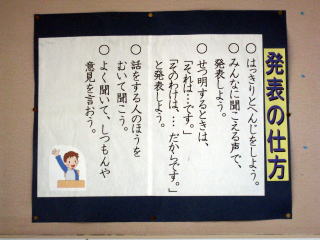 発表の仕方
○ はっきりとへんじをしよう。
○ みんなに聞こえる声で、
発表しよう。
○ せつ明するときは、
「それは…です。」
「そのわけは、… だからです。」
と発表しよう。
○ 話をする人のほうを
むいて聞こう。
○ よく聞いて、しつもんや
意見を言おう。